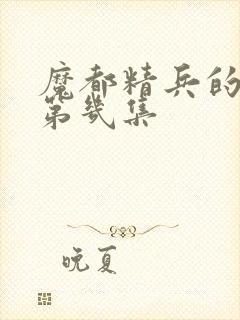 魔都精兵的
第几集
晚夏